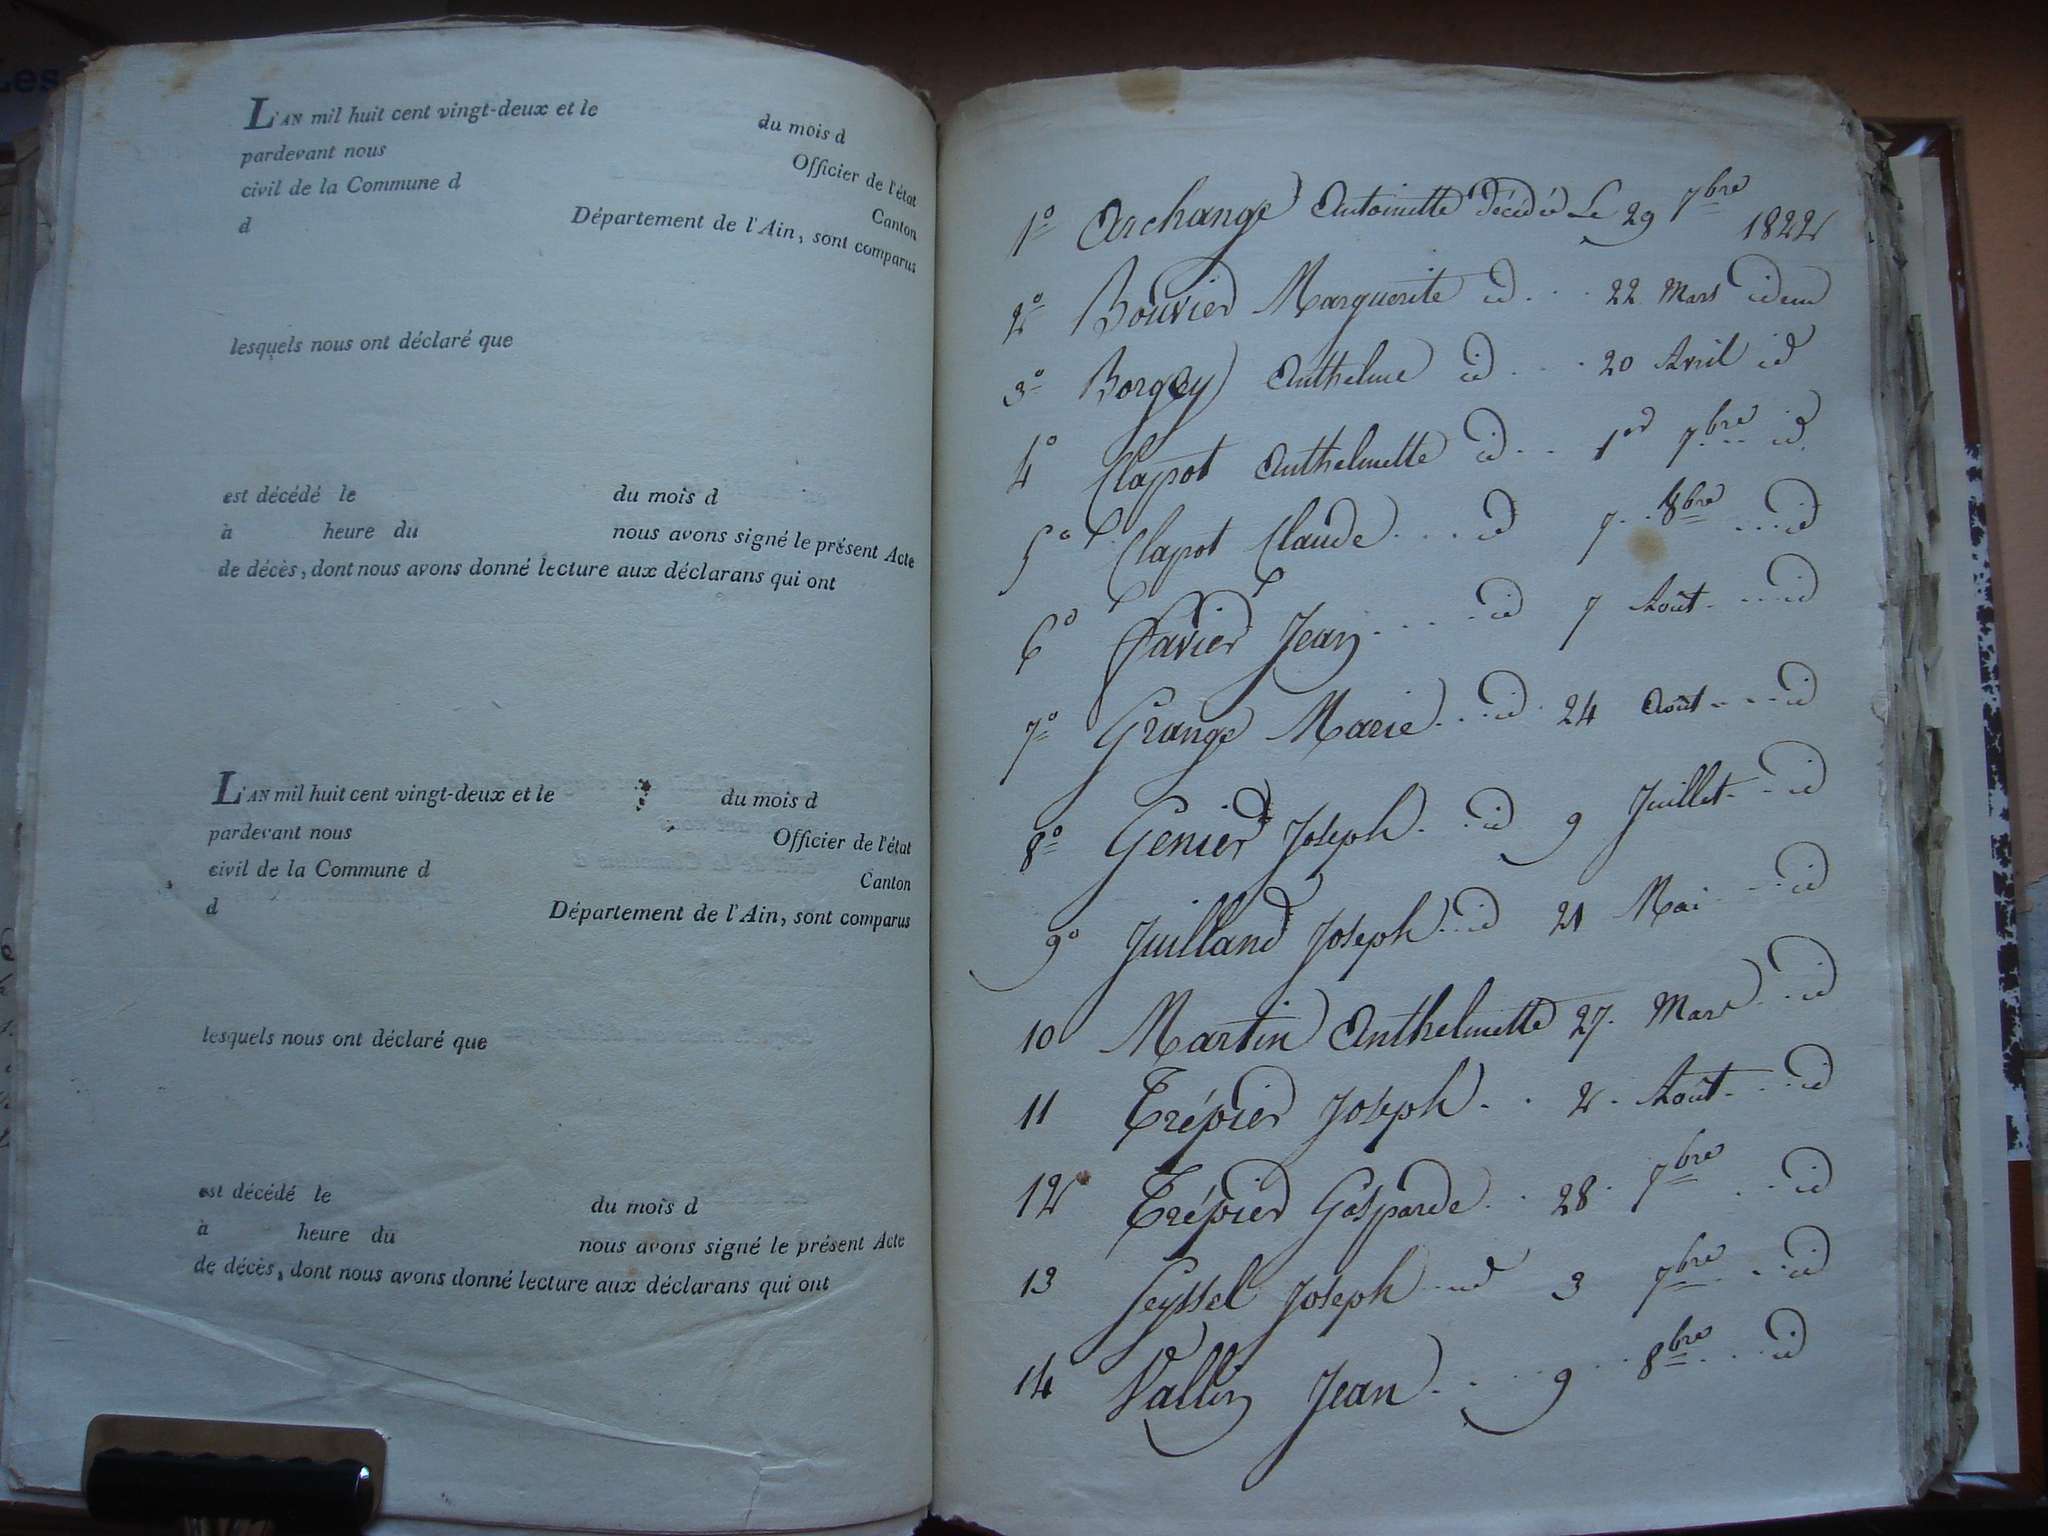 L'AN mil huit cent vingt-deux et le du mois d
pardevant nous Officier de l'état
civil de la Commune d Canton
d Département de l'Ain, sont comparus
lesquels nous ont déclaré que
est décédé le du mois d
à heure du nous avons signé le présent Acte
de décès, dont nous avons donné lecture aux déclarans qui ont
L'AN mil huit cent vingt-deux et le du mois d
pardevant nous Officier de l'état
civil de la Commune d Canton
d Département de l'Ain, sont comparus
lesquels nous ont déclaré que
est décédé le du mois d
à heure du nous avons signé le présent Acte
de décès, dont nous avons donné lecture aux déclarans qui ont
1° Archange Antoinette Décédée Le 29 7bre 1822
2° Bouvier Marguerite id... 22 Mars idem
3° Borgey Anthelme id... 20 Avril id
4° Clapot Anthelmette id... 1er 7bre id
5° Clapot Claude... id 7. 8bre... id
6° Favier Jean.... id 7 Août... id
7° Grange Marie... id. 24 Août... id
8° Genier Joseph.. id 9 Juillet.. id
9° Juilland Joseph.. id 21 Mai... id
10 Martin Anthelmette 27. Mars.. id
11 Trépier Joseph.. 2. Août... id
12 Trépier Gasparde.. 28. 7bre.. id
13 Seyssel Joseph.. id 3 7bre... id
14 Vallin Jean.... 9.. 8bre... id